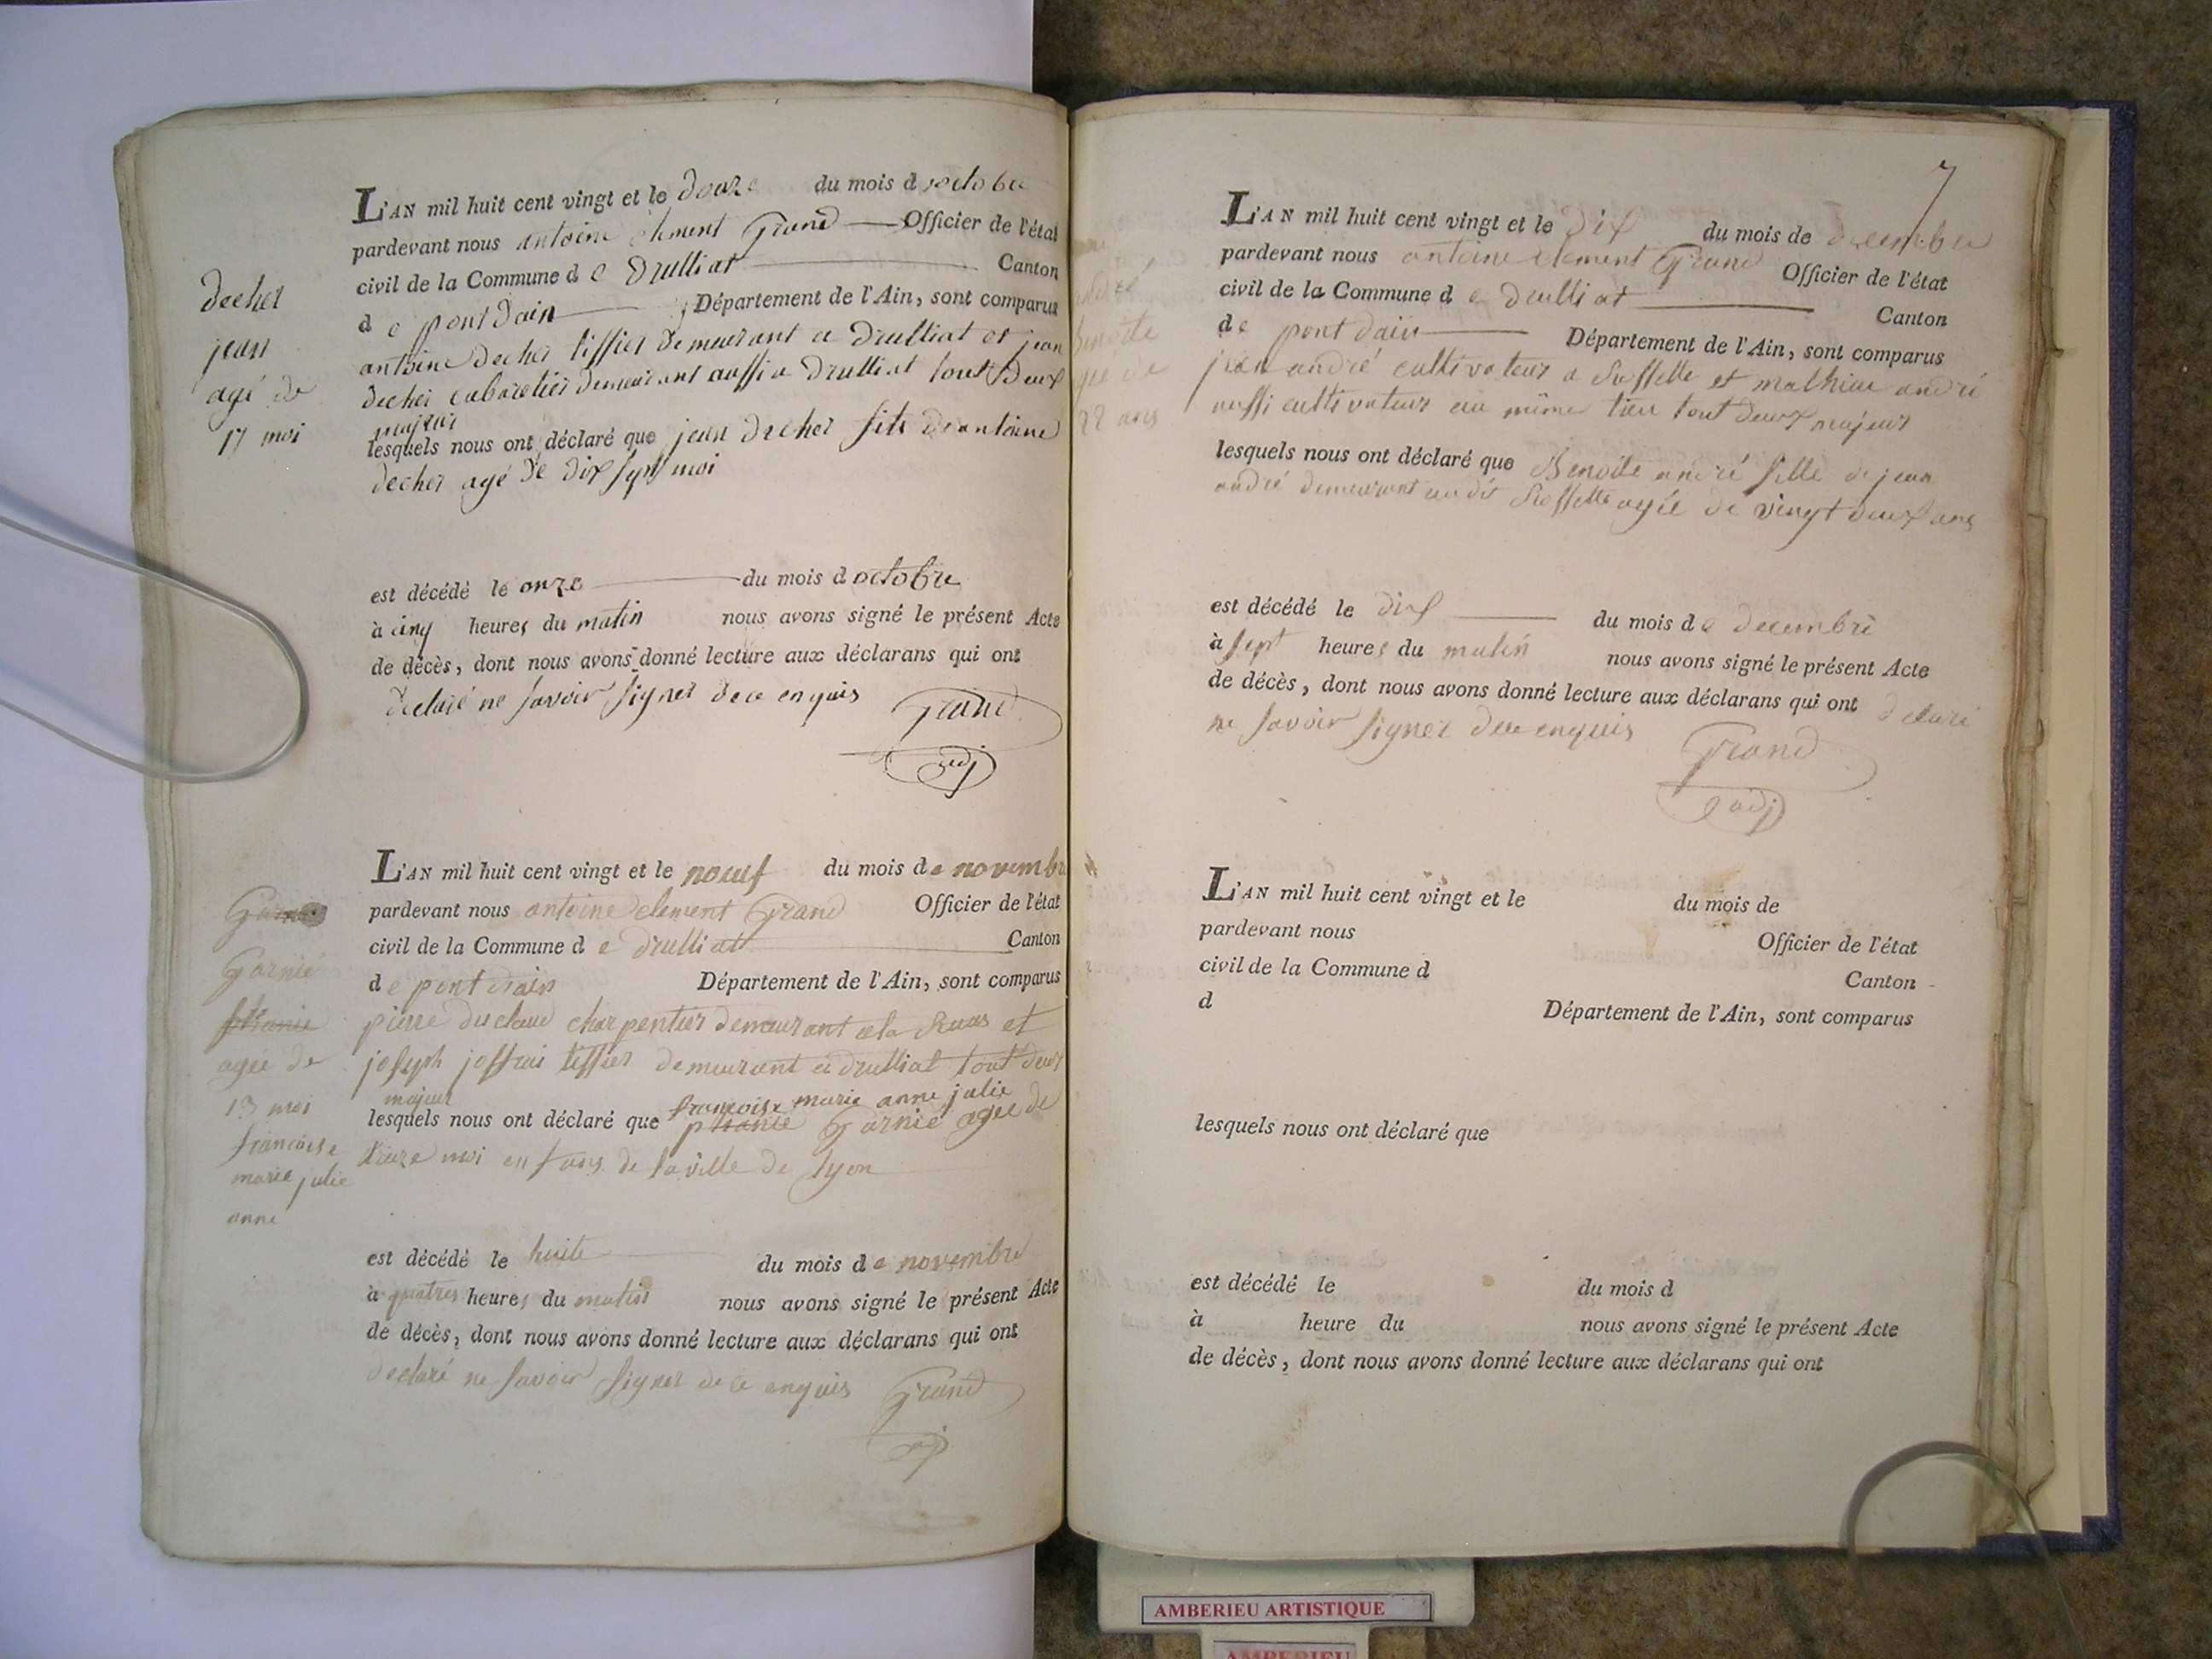 L'AN mil huit cent vingt et le douze du mois d octobre
pardevant nous antoine clement Grand Officier de l'état
civil de la Commune d e Drulliat Canton
d e pont Dain Département de l'Ain, sont comparus
antoine decher tissier demeurant a Drulliat et jean
decher cabaretier demeurant aussi a Drulliat tout deux
majeur
lesquels nous ont déclaré que jean decher fils de antoine
decher agé de dix sept moi
est décédé le onze du mois d octobre
à cinq heures du matin nous avons signé le présent Acte
de décès, dont nous avons donné lecture aux déclarans qui ont
declaré ne savoir signer de ce enquis Grand
adj
decher
jean
agé de
17 moi
L'AN mil huit cent vingt et le noeuf du mois de novembre
pardevant nous antoine clement Grand Officier de l'état
civil de la Commune d e drulliat Canton
d e pont dain Département de l'Ain, sont comparus
pierre duclaud charpentier demeurant a la et
joseph joffrai tissier demeurant a drulliat tout deux
majeur
françoise marie anne julie
lesquels nous ont déclaré que Garnié agée de
treize moi enfans de la ville de lyon
est décédé le huite du mois d e novembre
à quatres heures du matin nous avons signé le présent Acte
de décès, dont nous avons donné lecture aux déclarans qui ont
declaré ne savoir signer de ce enquis Grand
adj
Garnié
agée de
13 moi
françoise
marie julie
anne
7
L'AN mil huit cent vingt et le Dix du mois de decembre
pardevant nous antoine clement Grand Officier de l'état
civil de la Commune d e drulliat Canton
de pont dain Département de l'Ain, sont comparus
jean andré cultivateur a et mathieu andré
aussi cultivateur au même lieu tout deux majeur
lesquels nous ont déclaré que Benoite andré fille de jean
andré demeurant au dit agée de vingt deux ans
est décédé le dix du mois d e decembre
à sept heures du matin nous avons signé le présent Acte
de décès, dont nous avons donné lecture aux déclarans qui ont declaré
ne savoir signer de ce enquis Grand
adj
andré
benoite
agée de
22 ans
L'AN mil huit cent vingt et le du mois de
pardevant nous Officier de l'état
civil de la Commune d Canton
d Département de l'Ain, sont comparus
lesquels nous ont déclaré que
est décédé le du mois d
à heure du nous avons signé le présent Acte
de décès, dont nous avons donné lecture aux déclarans qui ont
AMBERIEU ARTISTIQUE
AMBERIEU